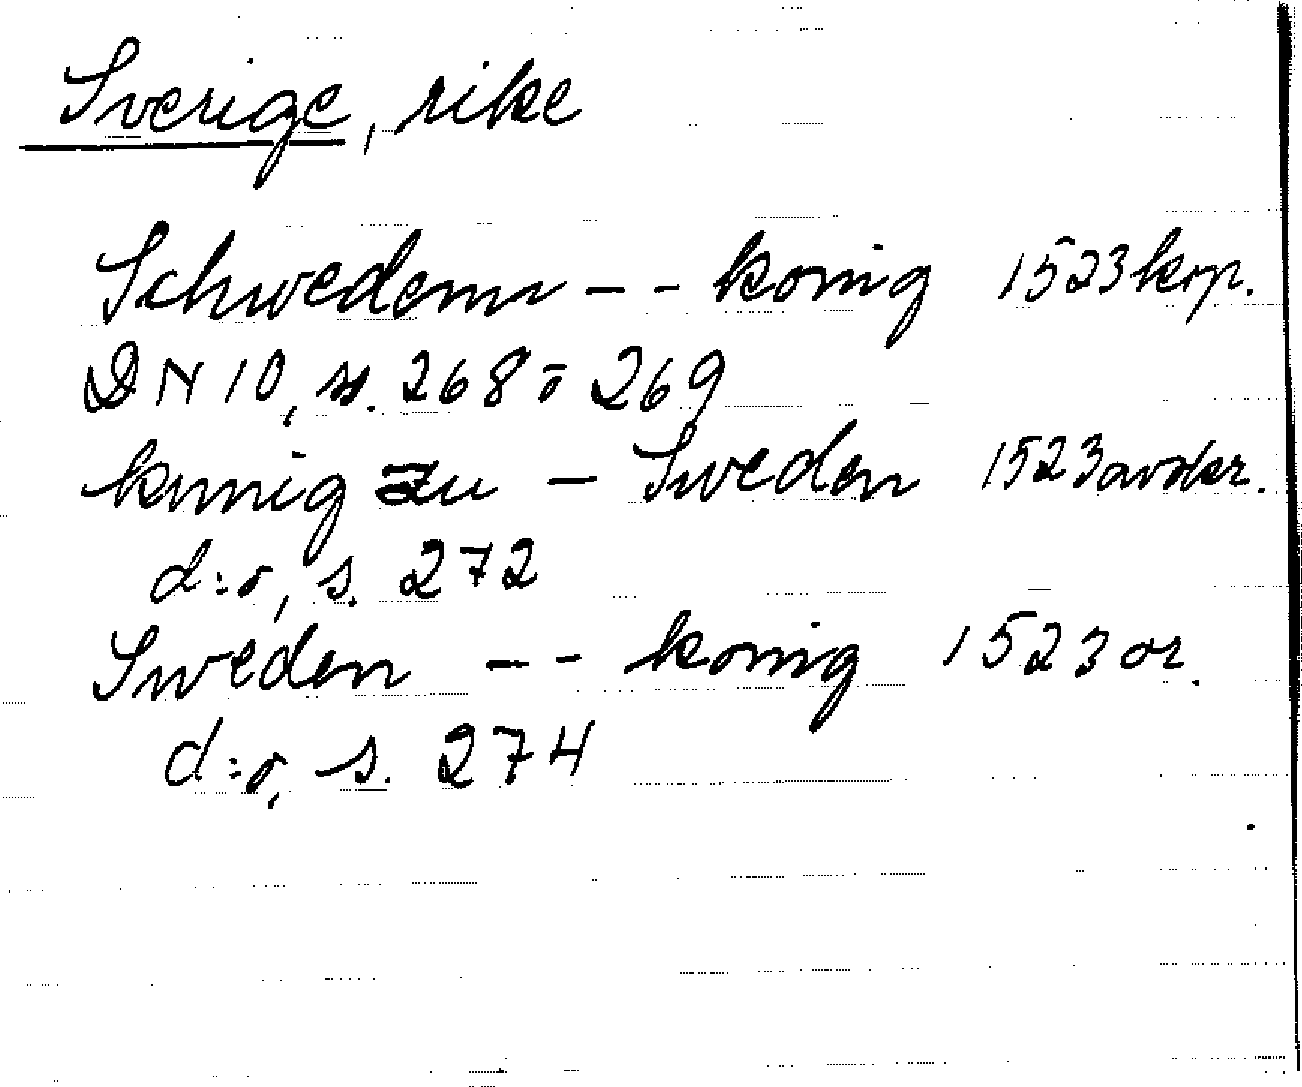 Sverige, rike
Schwedenn - - konig 1523 kop.
DN 10, s. 268 o 269
kunig zu - Sweden 1523 avskr.
d:o, s. 272
Sweden - - konig 1523 or.
d:o, s. 274